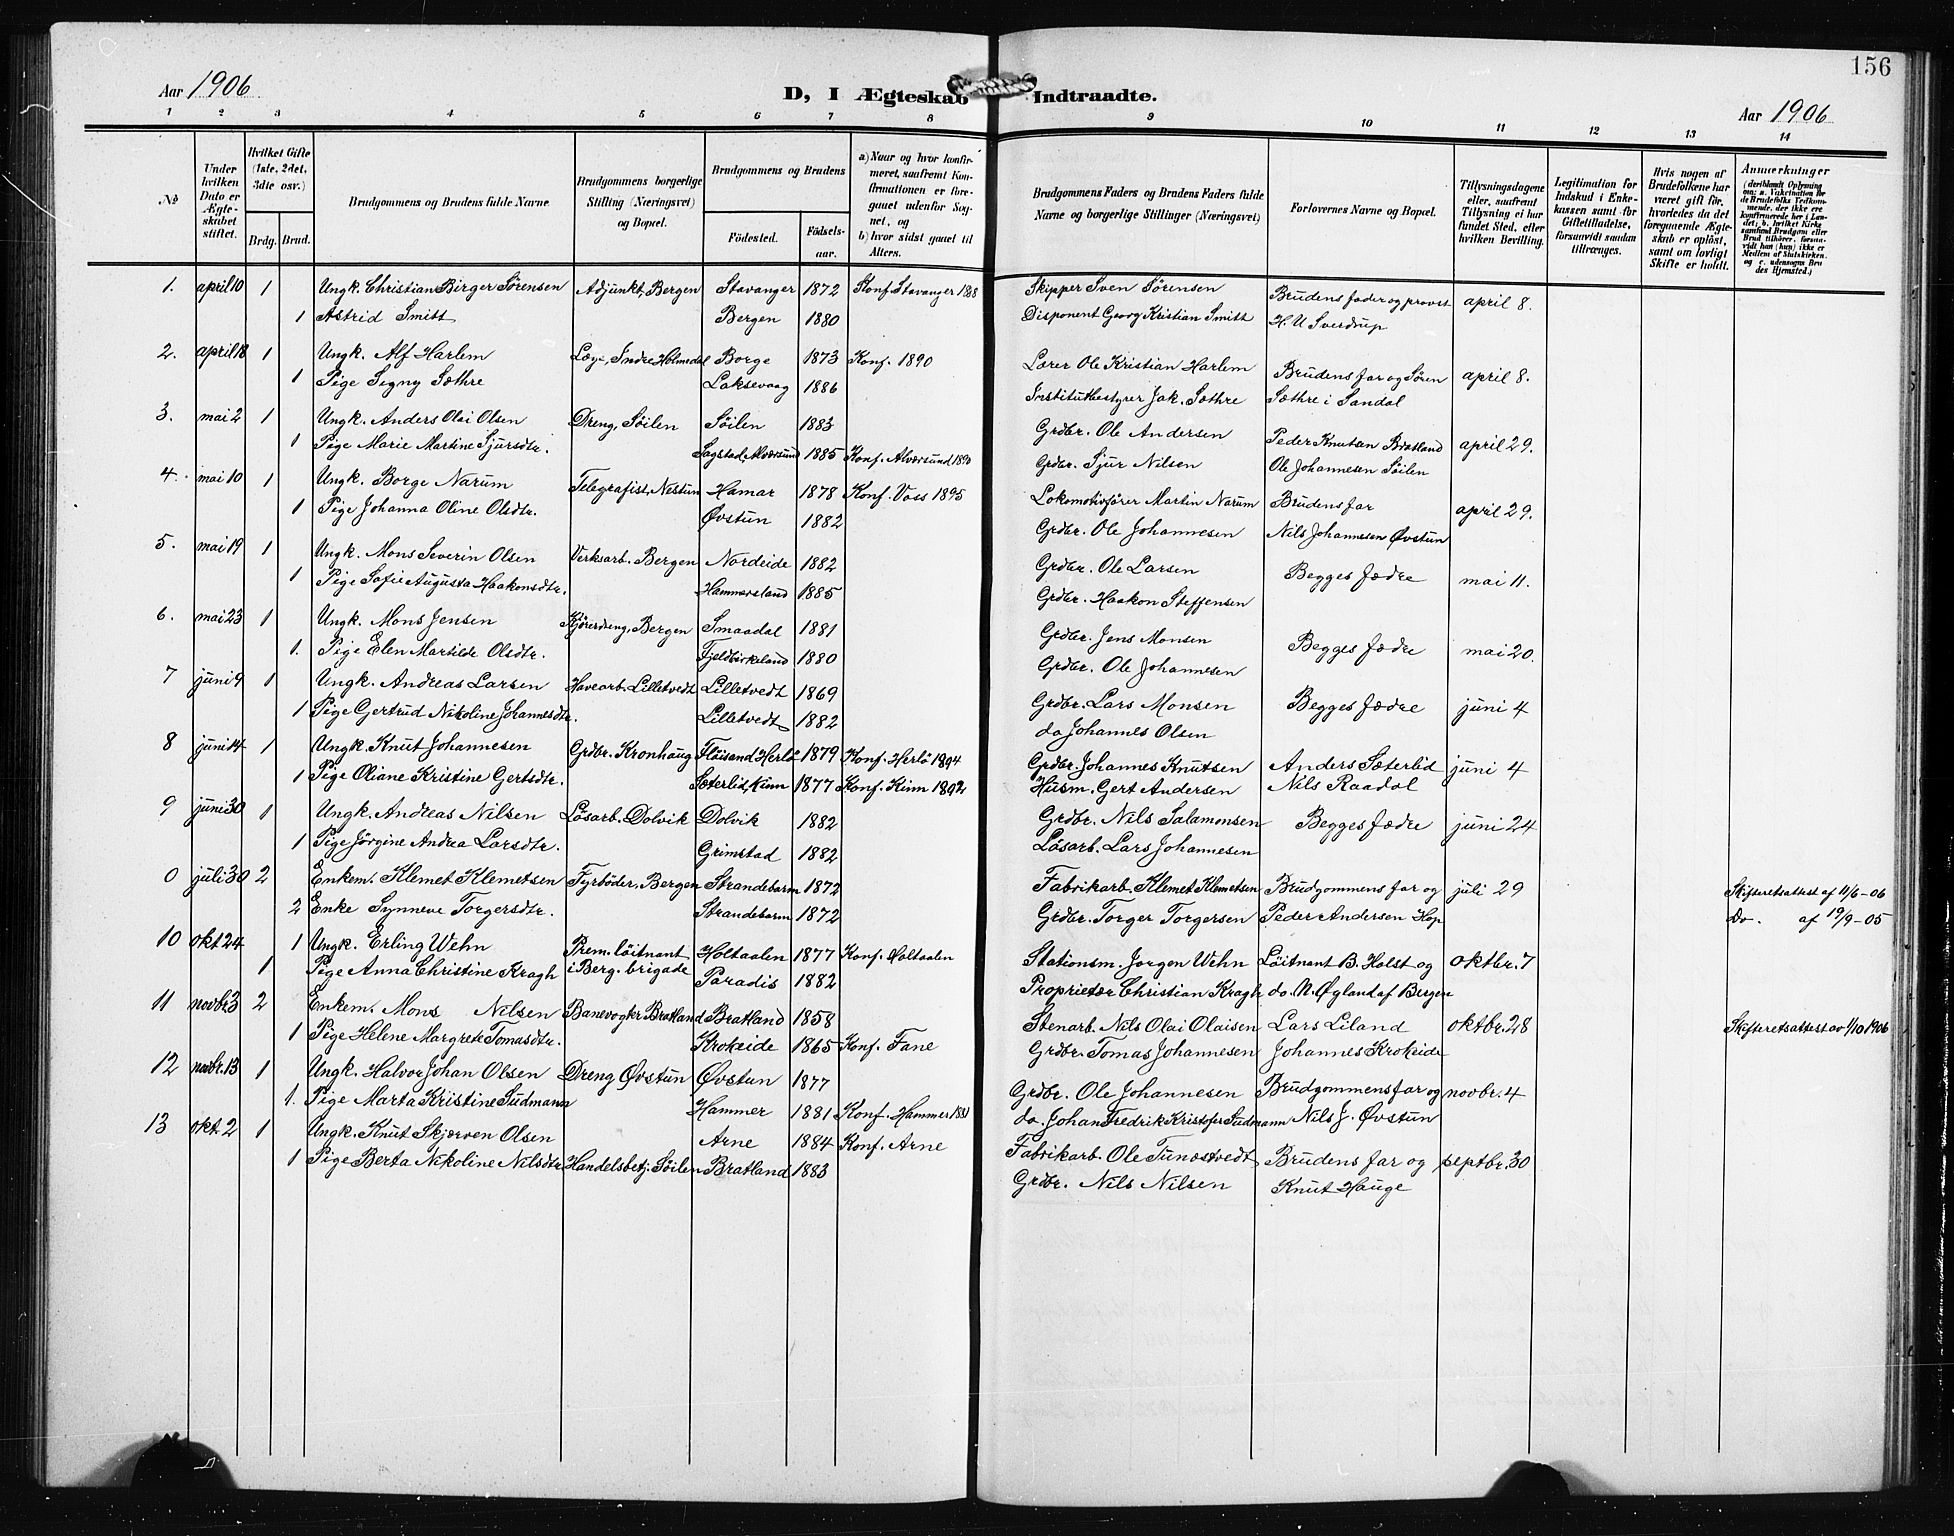 156
Aar 1906
D, I Ægteskab Indtraadte.
Aar 1906
1 2 3 4 5 6 7 8 9 10 11 12 13 14
No
Under hvilken Dato er Ægteskabet stiftet.
Hvilket Gifte (1ste, 2det, 3dte osv.)
Brdg. Brud.
Brudgommens og Brudens fulde Navne
Brudgommens borgerlige Stilling (Næringsvei) og Bopæl.
Brudgommens og Brudens
Fødested.
Fødselsaar.
a) Naar og hvor konfirmeret, saafremt Konfirmationen er foregaaet udenfor Sognet, og
b) hvor sidst gaaet til Alters.
Brudgommens Faders og Brudens Faders fulde Navne og borgerlige Stillinger (Næringsvei)
Forlovernes Navne og Bopæl.
Tillysningsdagene eller, saafremt Tillysning ei har fundet Sted, efter hvilken Bevilling.
Legitimation for Indskud i Enkekassen samt for Giftetilladelse, forsaavidt saadan tiltrænges.
Hvis nogen af Brudefolkene har været gift før, hvorledes da det foregaaende Ægteskab er opløst, samt om lovligt Skifte er holdt.
Anmærkninger
(deriblandt Oplysning om: a. Vakcination for de Brudefolks Vedkommende, der ikke ere konfirmerede her i Landet; b. hvilket Kirkesamfund Brudgom eller Brud tilhører, forsaavidt han (hun) ikke er Medlem af Statskirken, og c. udensogns Brudes Hjemsted.)
1. april 10 1 Ungk. Christian Birger Sörensen Adjunkt, Bergen Stavanger 1872 Konf. Stavanger 1888 Skipper Sven Sörensen Brudens fader og provst april 8.
1 Astrid Smitt Bergen 1880 Disponent Georg Kristian Smitt H. U Sverdrup
2. april 18 1 Ungk. Alf Harlem Læge, Indre Holmedal Borge 1873 Konf. 1890 Lærer Ole Kristian Harlem Brudens far og Sören april 8.
1 Pige Signy Sæthre Laksevaag 1886 Institutbestyrer Jak. Sæthre Sæthre i Sandal
3. mai 2 1 Ungk. Anders Olai Olsen Dreng, Söilen Söilen 1883 Grdbr. Ole Andersen Peder Knutsen Bratland april 29.
1 Pige Marie Martine Sjursdtr. Sagstad, Alværsund 1885 Konf. Alværsund 1890 Grdbr. Sjur Nilsen Ole Johannesen Söilen
4. mai 10 1 Ungk. Borge Narum Telegrafist, Nestun Hamar 1878 Konf. Voss 1895 Lokomotivfører Martin Narum Brudens far april 29.
1 Pige Johanna Oline Olsdtr. Øvstun 1882 Grdbr. Ole Johannesen Nils Johannesen Øvstun
5. mai 19 1 Ungk. Mons Severin Olsen Verksarb. Bergen Nordeide 1882 Grdbr. Ole Larsen Begges fædre mai 11.
1 Pige Sofie Augusta Haakonsdtr. Hammersland 1885 Grdbr. Haakon Steffensen
6. mai 23 1 Ungk. Mons Jensen Kjöredreng, Bergen Smaadal 1881 Grdbr. Jens Monsen Begges fædre mai 20.
1. Pige Elen Martilde Olsdtr. Fjeldbirkeland 1880 Grdbr. Ole Johannesen
7 juni 9 1 Ungk. Andreas Larsen Havearb. Lilletvedt Lilletvedt 1869 Grdbr. Lars Monsen Begges fædre juni 4
1 Pige Gertrud Nikoline Johannesdtr. Lilletvedt 1882 do Johannes Olsen
8 juni 14 1 Ungk. Knut Johannesen Grdbr. Kronhaug Flöisand Herlö 1879 Konf. Herlö 1894 Grdbr. Johannes Knutsen Anders Sæterlid juni 4
1 Pige Oliane Kristine Gertsdtr. Sæterlid, Kinn 1877 Konf. Kinn 1892 Husm. Gert Andersen Nils Raadal
9 juni 30 1 Ungk. Andreas Nilsen Lösarb. Dolvik Dolvik 1882 Grdbr. Nils Salamonsen Begges fædre juni 24
1 Pige Jörgine Andrea Larsdtr. Grimstad 1882 Lösarb. Lars Johannesen
0 juli 30 2 Enkem. Klemet Klemetsen Fyrböder, Bergen Strandebarm 1872 Fabrikarb. Klemet Klemetsen Brudgommens far og juli 29 Skifteretsattest af 11/6-06
2 Enke Synneve Torgersdtr. Strandebarm 1872 Grdbr. Torger Torgersen Peder Andersen Hop Do. af 19/9-05
10 okt 24 1 Ungk. Erling Wehn Prem. löitnant Holtaalen 1877 Konf. Holtaalen Stationsm. Jorgen Wehn Löitnant B. Holst og oktbr. 7
1 Pige Anna Christine Kragh i Berg. brigade Paradis 1882 Proprietær Christian Kragh do. N. Øgland af Bergen
11 novbr 3 2 Enkem. Mons Nilsen Banevogtr Bratland Bratland 1858 Stenarb. Nils Olai Olaisen Lars Liland oktbr. 28 Skifteretsattest av 1/10 1906
1 Pige Helene Margrete Tomasdtr. Krokeide 1865 Konf. Fane Grdbr. Tomas Johannesen Johannes Krokeide
12 novbr. 13 1 Ungk. Halvor Johan Olsen Dreng Øvstun Øvstun 1877 Grdbr. Ole Johannesen Brudgommens far og novbr. 4
1. Pige Marta Kristine Sudmann Hammer 1881 Konf. Hammer do. Johan Fredrik Kristofer Sudmann Nils J. Øvstun
13 okt. 2 1 Ungk. Knut Skjærven Olsen Arne 1884 Konf. Arne Fabrikarb. Ole Tunæstvedt Brudens far og septbr. 30
1 Pige Berta Nikoline Nilsdtr Handelsbetj. Söilen Bratland 1883 Grdbr. Nils Nilsen Knut Hauge